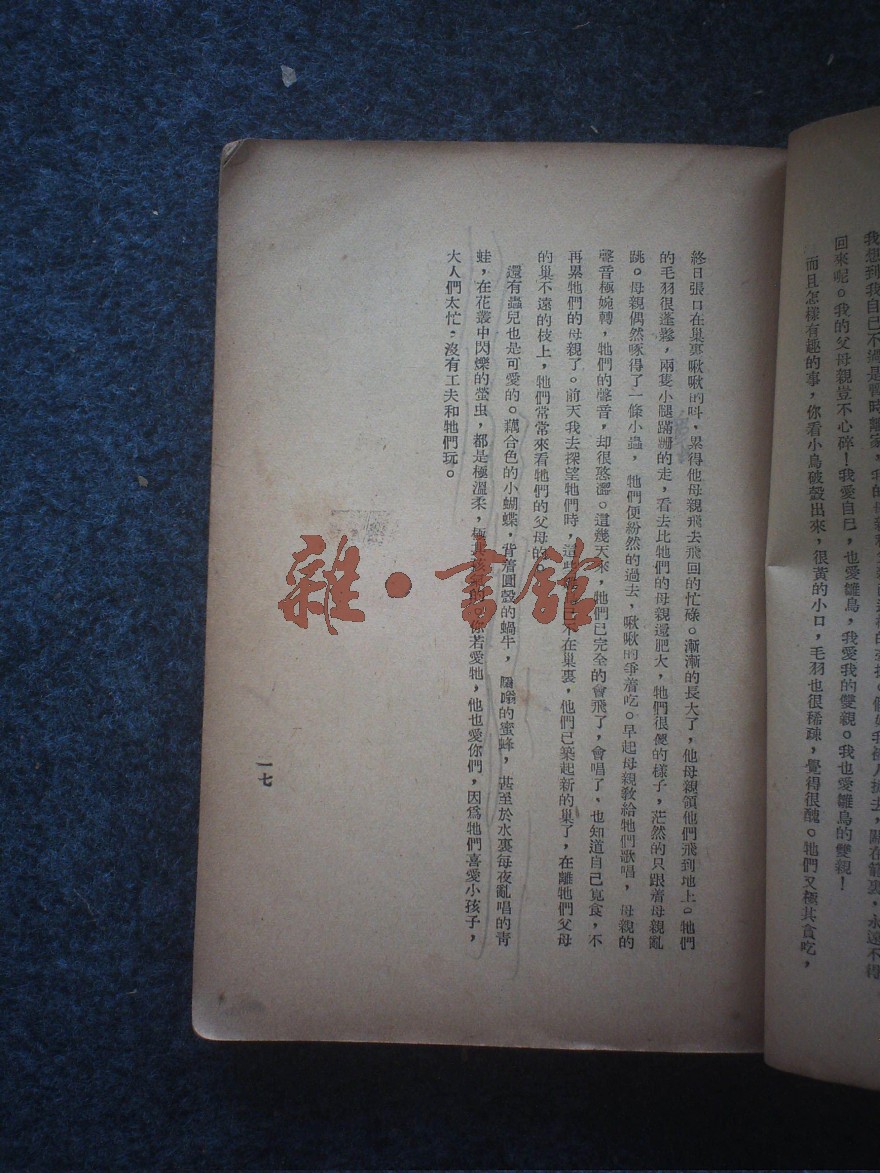 我想到我自己不過是暫時離家，我的母親
回來呢。我的父母親豈不心碎！我愛自己，也愛雛鳥，我愛我的雙親。我也愛雛鳥的雙親！
而且怎樣有趣的事，你看小鳥破殼出來，很黃的小口，毛羽也很稀疎，覺得很醜。牠們又極其貪吃，
終日張口在巢裏啾啾的叫，累得他母親飛去飛回的忙碌。漸漸的長大了，他母親領他們飛到地上。牠們
的毛羽很蓬鬆，兩隻小腿蹣跚的走，看去比牠們的母親還肥大，牠們很傻的樣子，茫然的只跟着母親亂
跳。母親偶然啄得了一條小蟲，牠們便紛然的過去，啾啾的爭着吃。早起母親教給牠們歌唱，母親的
聲音極婉轉，牠們的聲音，却很憨澀。這幾天來，牠們已完全的會飛了，會唱了、也知道自己覓食，不
再累牠們的母親了。前天我去探望牠們時，這些不在巢裏，他們已築起新的巢了，在離牠們父母
的巢不遠的枝上，牠們常常來看牠們的父母的。
還有蟲兒也是可愛的。藕合色的小蝴蝶，背着圓殼的蝸牛，嗡嗡的蜜蜂，甚至於水裏每夜亂唱的青
蛙，在花叢中閃爍的螢虫，都是極溫柔，極其孩氣的。你若愛牠，他也愛你們，因爲牠們喜愛小孩子，
大人們太忙，沒有工夫和牠們玩。
一七
雜·書館